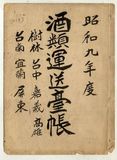 昭和九年度
酒類運送臺帳
樹林 台中 嘉義 高雄
台南 宜蘭 屏東